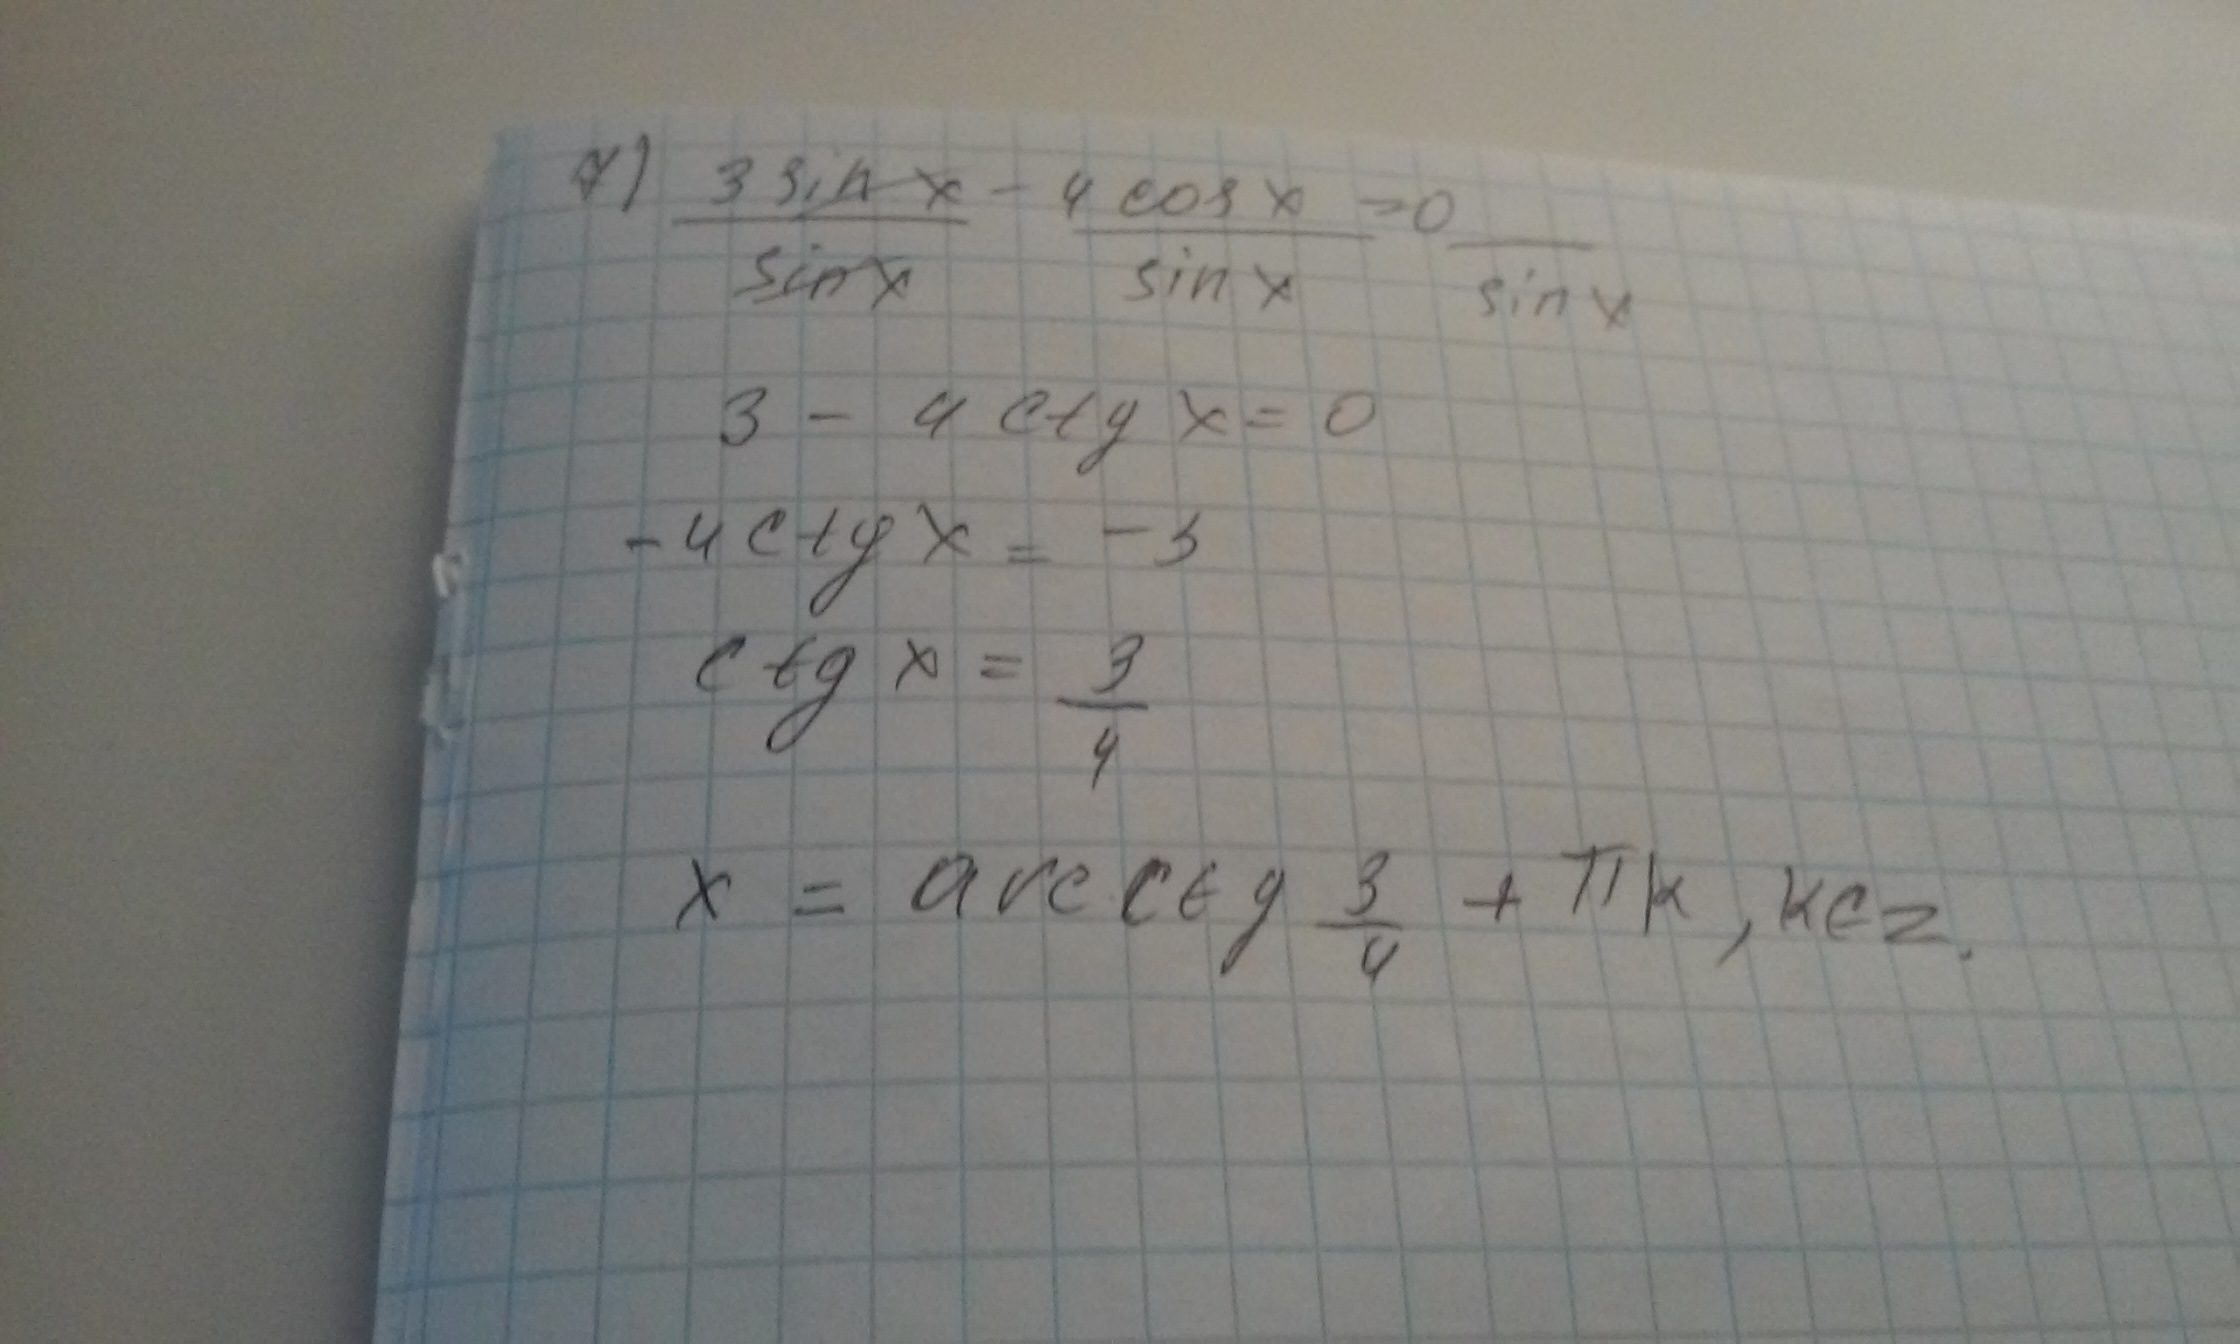 7) 3 sin x - 4 cos x = 0
sin x sin x sin x
3 - 4 ctg x = 0
-4 ctg x = -3
ctg x = 3/4
x = arcctg 3/4 + πk, k∈z.